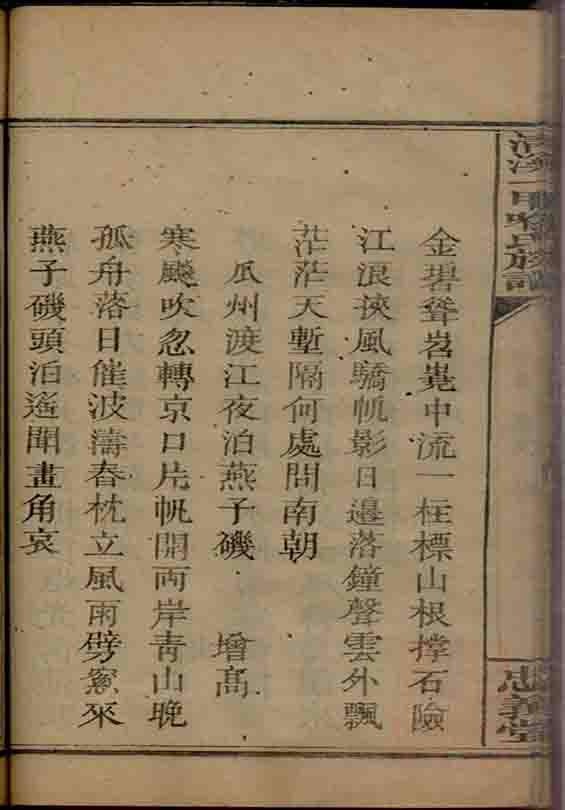 氏族譜
忠義堂
金碧聳岧嶤中流一柱標山根撐石險
江浪挾風驕帆影日邊落鐘聲雲外飄
茫茫天塹隔何處問南朝
瓜州渡江夜泊燕子磯 增高
寒飈吹忽轉京口片帆開兩岸青山晚
孤舟落日催波濤舂枕立風雨劈窻來
燕子磯頭泊遙聞畫角哀